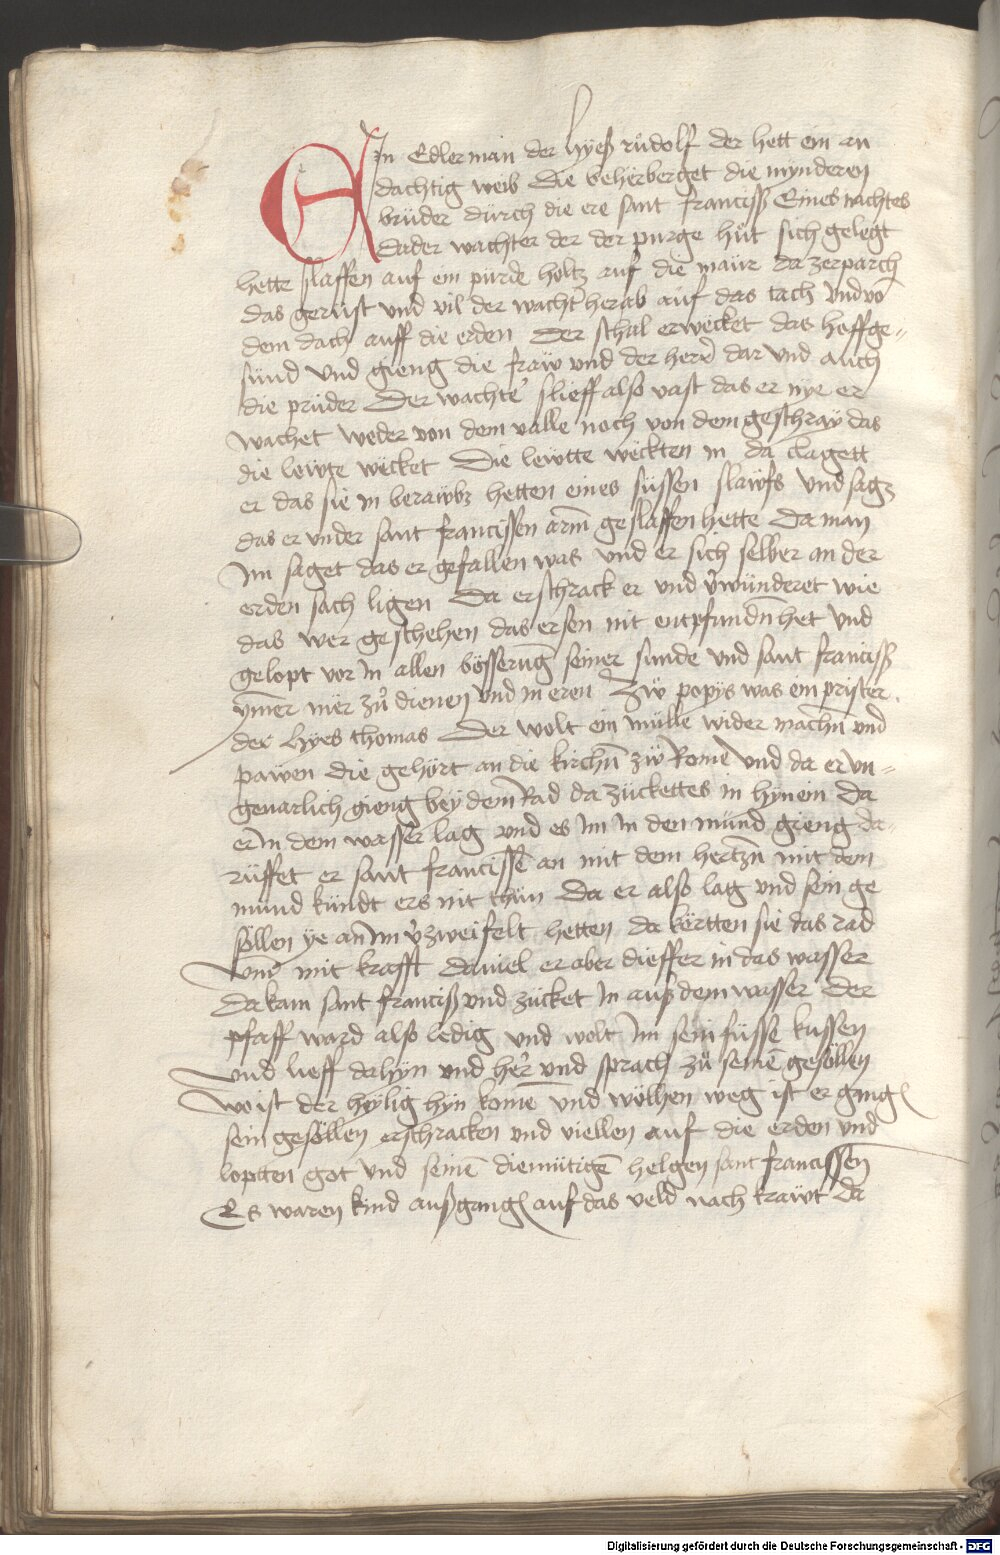 EIn Edler man der hyeß rudolf der hett ein an
dachtig weib Die beherberget die mynderen
brüder dürch die ere sant francisß Eines nachtes
Da der wachter der der purge hüt sich gelegt
hette slaffen auf ein pürde holtz auf die maür da zerparch
das gerüst und vil der wachter herab auf das tach Vnd võ
dem dach auff die erden Der schal erwecket das hoffge„
sünd Vnd gieng die fraw vnd der herre dar Vnd auch
die prüder Der wachte' slieff also vast das er nye er
wachet weder von dem valle noch von dem geschray das
die lewte wecket Die lewtte weckten in da clagett
er das sie in berawbz hetten eines süssen slawfs Vnd sagz
das er vnder sant francissen arm geslaffen hette Da man
Im saget das er gefallen was vnd er sich selber an der
erden sach ligen Da erschrack er vnd v̄wunderet wie
das wer geschehen das er sen nit entpfundn het Vnd
gelopt vor in allen bösserung̃ seiner sunde vnd sant francisß
ym̄er mer zu dienen vnd in eren Zw popys was ein prister
der hyes thomas Der wolt ein mülle wider mach̃n vnd
pawen die gehört an die kirch̃n zw Rome Vnd da er vn„
geuarlich gieng bey dem Rad da zückettes in hynein Da
er in dem wasser lag vnd es im in den mund gieng da„
rüffet er sant francissē an mit dem hertzñ mit dem
mund kündt ers nit thün Da er also lag vnd sein ge
söllen ye an im v̄zweifelt hetten da kertten sie das rad
vmb mit krafft da viel er aber dieffer in das wasser
Da kam sant francisß vnd zücket in auß dem wasser Der
pfaff ward also ledig vnd wolt im sein füsse kussen
vnd lieff da hyn vnd her vnd sprach zü seinē gesöllen
wo ist der heylig hyn komē vnd wölhen weg ist er gang̃
sein gesöllen erschracken vnd viellen auf die erden vnd
loptten got vnd seinē diemütigē helgen sant francissen
Es waren kind außgang̃ auf das veld nach krawt da
Digitalisierung gefördert durch die Deutsche Forschungsgemeinschaft - DFG